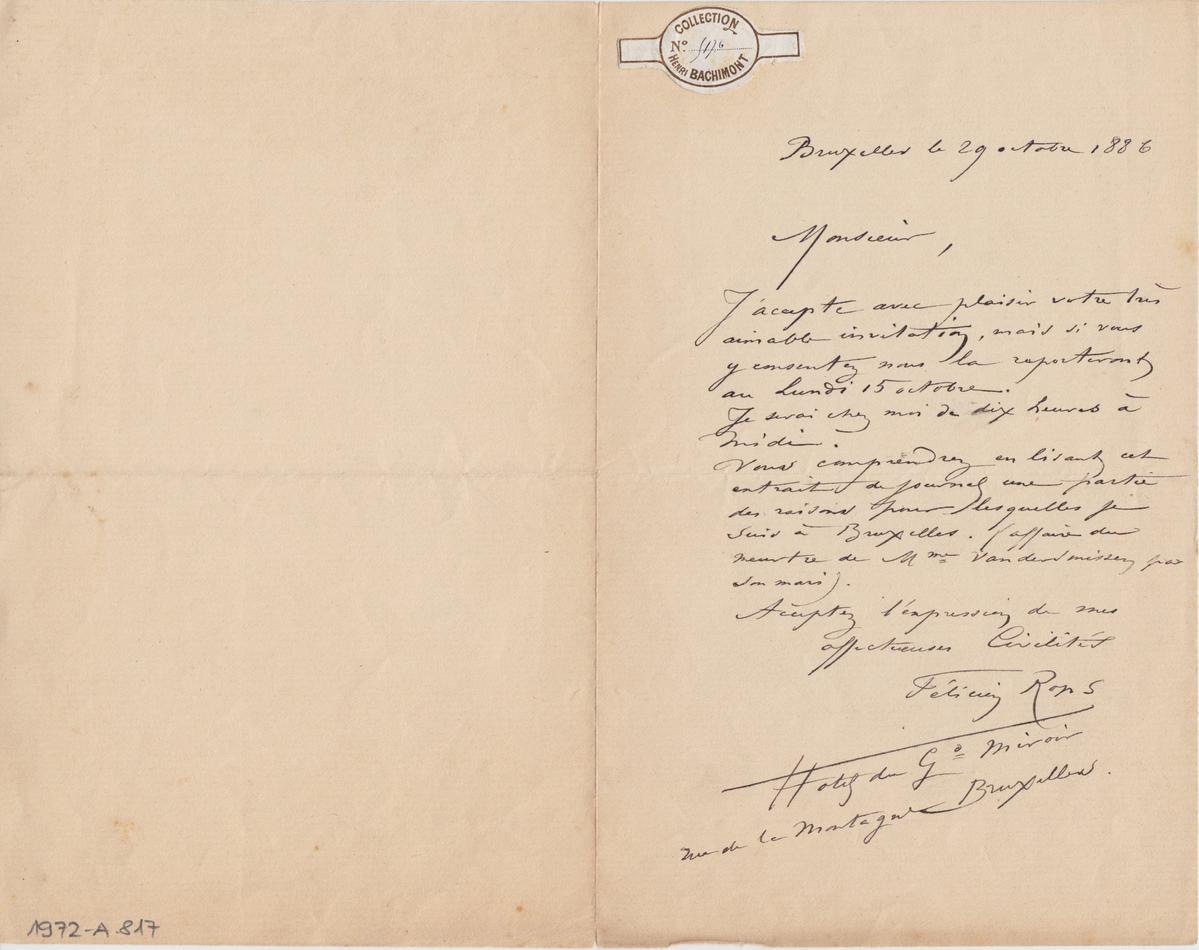 COLLECTION
No.
HENRI BACHIMONT
Bruxelles le 29 octobre 1886
Monsieur,
J'acepte avec plaisir votre très
aimable invitation, mais si vous
y consentez nous la reporteront
au Lundi 15 octobre.
Je serai chez moi de dix heures à
midi.
Vous comprendrez en lisant cet
extrait de journal une partie
des raisons pour lesquelles je
suis à Bruxelles. (affaire du
meurtre de Mme Vandersmissen par
son mari).
Aceptez l'expression de mes
affectueuses Civilités
Félicien Rops
Hotel du Gd Miroir
rue de la Montagne Bruxelles.
1972-A.817